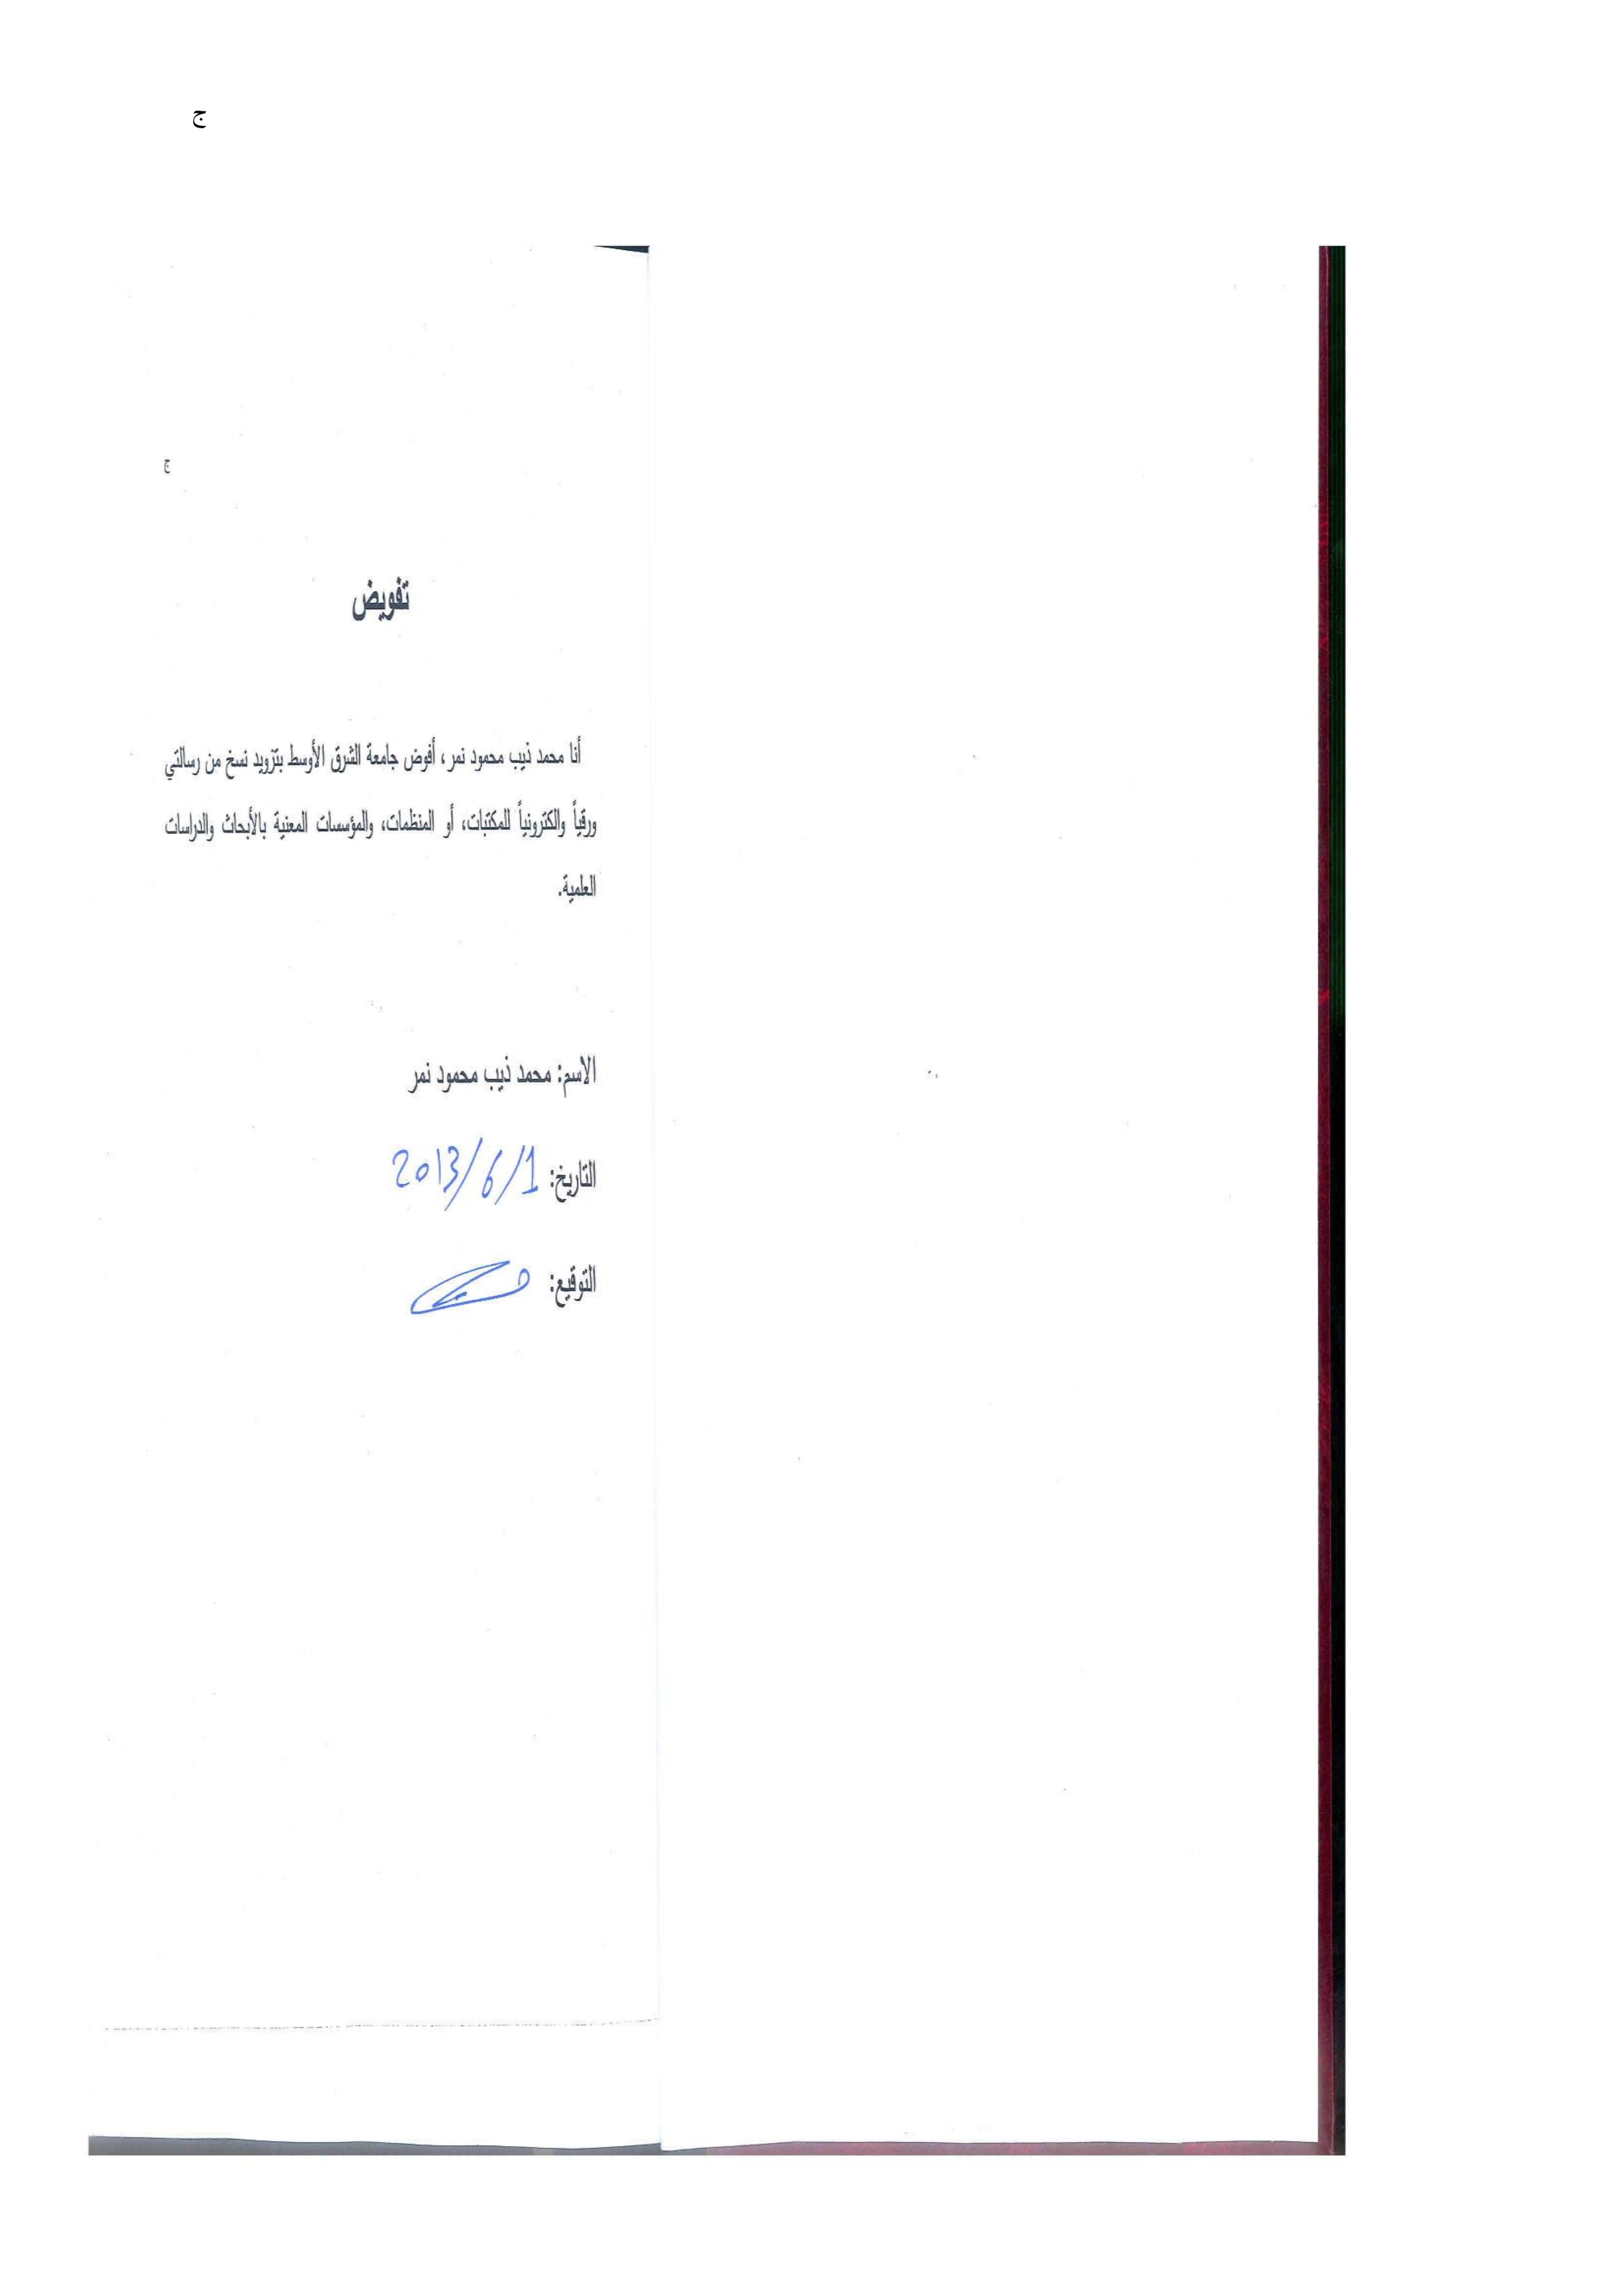 ج
ج
تفويض
أنا محمد ذيب محمود نمر، أفوض جامعة الشرق الأوسط بتزويد نسخ من رسالتي
ورقياً والكترونياً للمكتبات، أو المنظمات، والمؤسسات المعنية بالأبحاث والدراسات
العلمية.
الاسم: محمد ذيب محمود نمر
التاريخ: 2013/6/1
التوقيع: